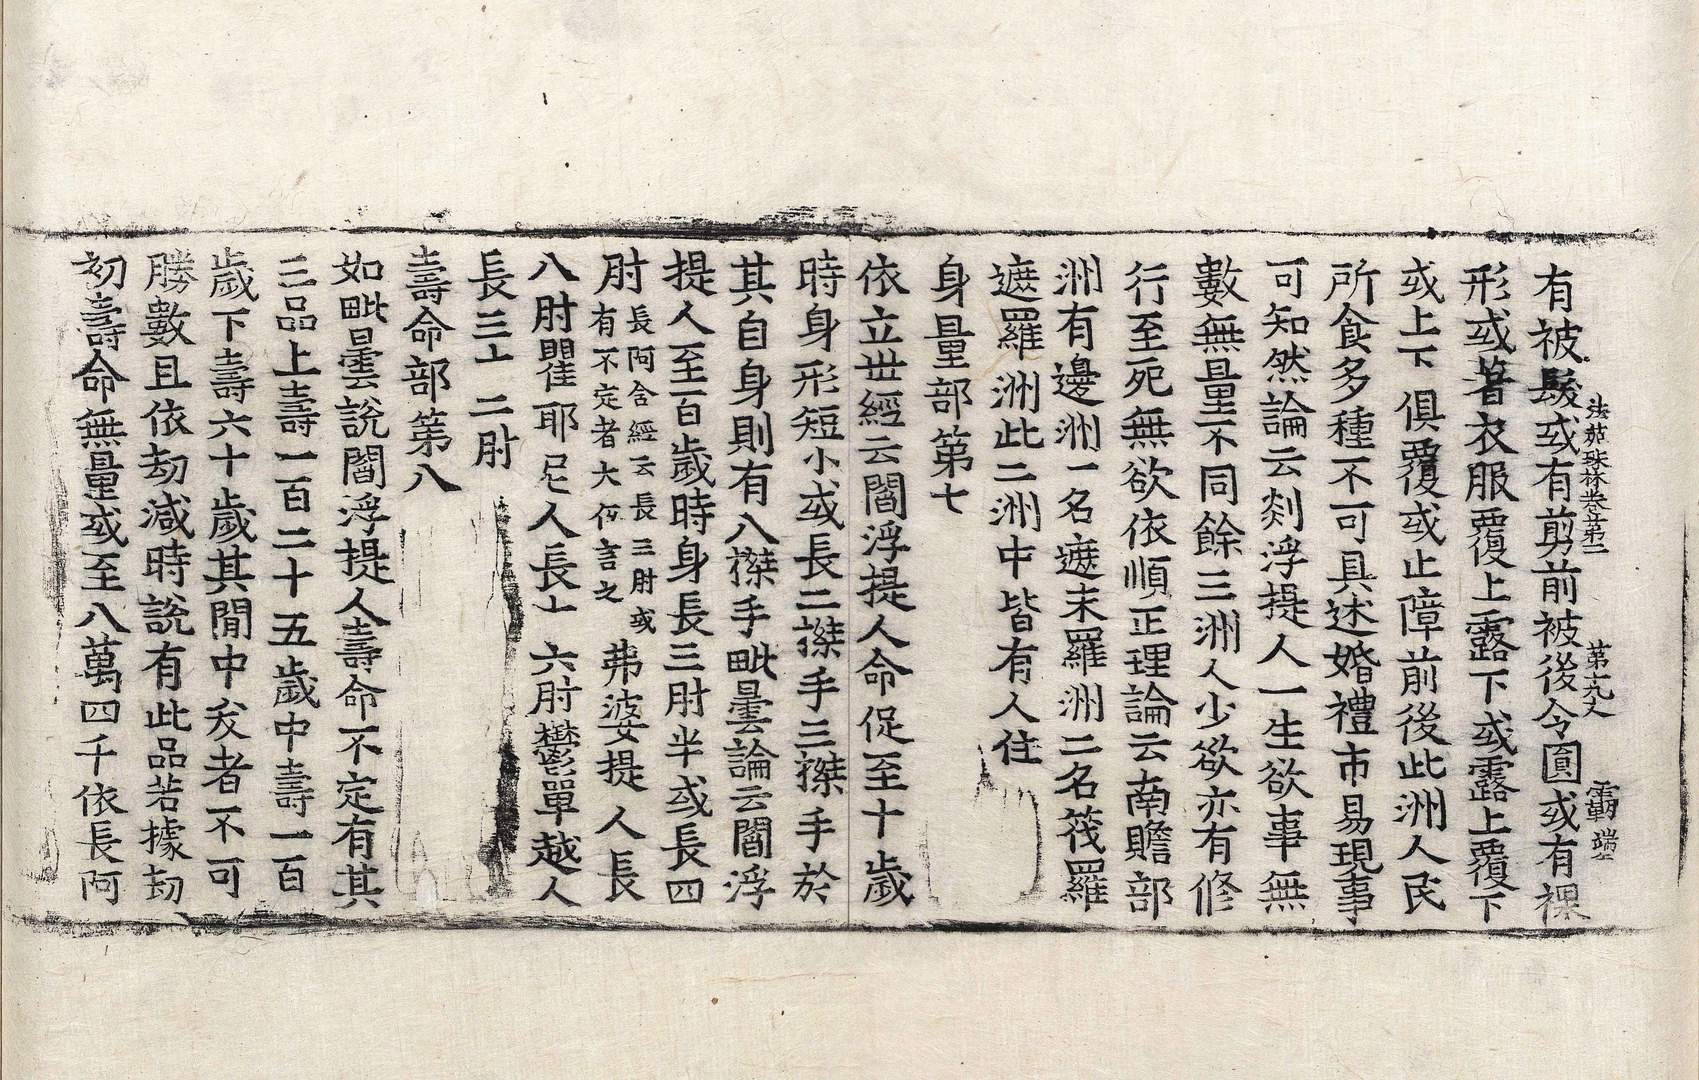 法苑珠林卷第二　第十九丈　霸　端
有被髮或有剪前被後令圓或有裸
形或著衣服覆上露下或露上覆下
或上下俱覆或止障前後此洲人民
所食多種不可具述婚禮市易現事
可知然論云剡浮提人一生欲事無
數無量不同餘三洲人少欲亦有修
行至死無欲依順正理論云南贍部
洲有邊洲一名遮末羅洲二名筏羅
遮羅洲此二洲中皆有人住
身量部第七
依立世經云閻浮提人命促至十歲
時身形短小或長二搩手三搩手於
其自身則有八搩手毗曇論云閻浮
提人至百歲時身長三肘半或長四
肘長阿含經云長三肘或有不定者大約言之弗婆提人長
八肘瞿耶尼人長十六肘鬱單越人
長三十二肘
壽命部第八
如毗曇說閻浮提人壽命不定有其
三品上壽一百二十五歲中壽一百
歲下壽六十歲其間中夭者不可
勝數且依劫減時說有此品若據劫
初壽命無量或至八萬四千依長阿